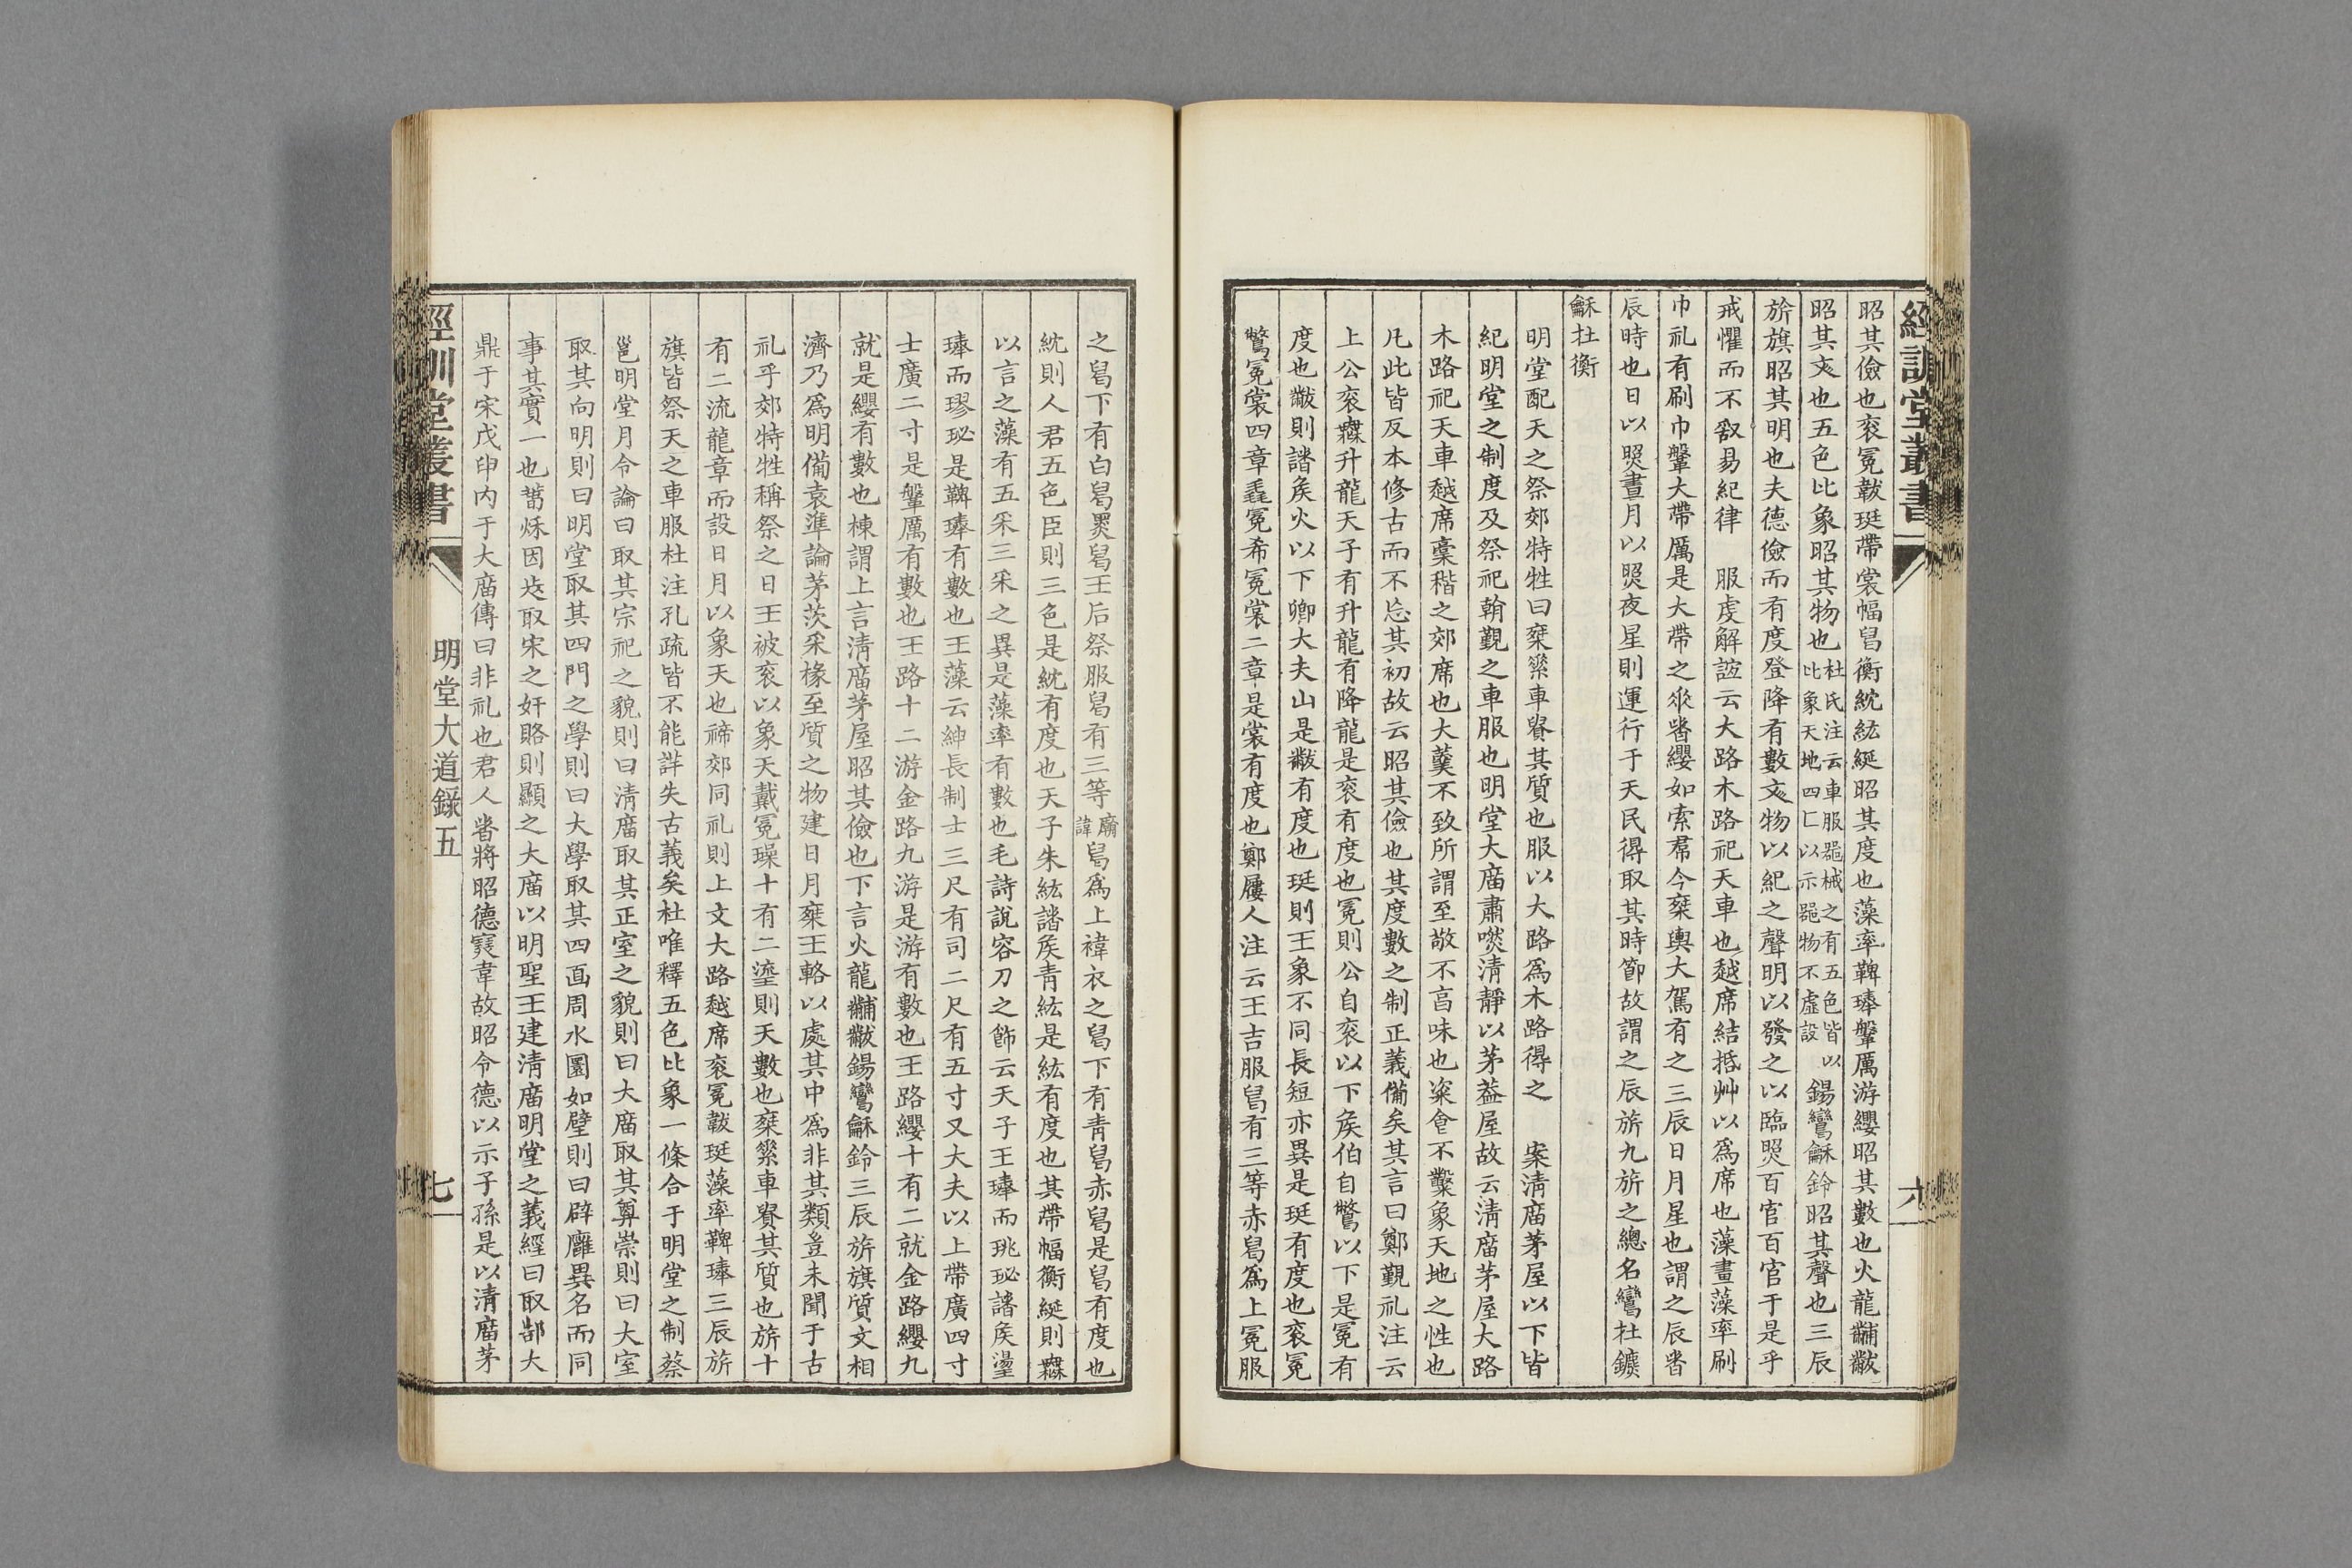 經訓堂叢書
六
昭其儉也衮冕韍珽帶裳幅舄衡紞紘綖昭其度也藻率鞞琫鞶厲游纓昭其數也火龍黼黻
昭其文也五色比象昭其物也杜氏注云車服噐械之有五色皆以比象天地四匚以示噐物不虛設鍚鸞龢鈴昭其聲也三辰
旂旗昭其明也夫德儉而有度登降有數文物以紀之聲明以發之以臨照百官百官于是乎
戒懼而不敢易紀律　服虔解誼云大路木路祀天車也越席結括艸以爲席也藻畫藻率刷
巾礼有刷巾鞶大帶厲是大帶之垂者纓如索帬今椉輿大駕有之三辰日月星也謂之辰者
辰時也日以照晝月以照夜星則運行于天民得取其時節故謂之辰旂九旂之總名鸞杜鑣
龢杜衡
明堂配天之祭郊特牲曰椉素車貴其質也服以大路爲木路得之　案淸廟茅屋以下皆
紀明堂之制度及祭祀朝覲之車服也明堂大廟肅然淸靜以茅葢屋故云淸廟茅屋大路
木路祀天車越席稾秸之郊席也大羹不致所謂至敬不亯味也粢食不鑿象天地之性也
凡此皆反本修古而不忘其初故云昭其儉也其度數之制正義備矣其言曰鄭覲礼注云
上公衮無升龍天子有升龍有降龍是衮有度也冕則公自衮以下矦伯自鷩以下是冕有
度也黻則諸矦火以下卿大夫山是黻有度也珽則王象不同長短亦異是珽有度也衮冕
鷩冕裳四章毳冕希冕裳二章是裳有度也鄭屨人注云王吉服舄有三等赤舄爲上冕服
之舄下有白舄黑舄王后祭服舄有三等廟諱舄爲上褘衣之舄下有靑舄赤舄是舄有度也
紞則人君五色臣則三色是紞有度也天子朱紘諸矦靑紘是紘有度也其帶幅衡綖則無
以言之藻有五采三采之異是藻率有數也毛詩說容刀之飾云天子玉琫而珧珌諸矦璗
琫而璆珌是鞞琫有數也玉藻云紳長制士三尺有司二尺有五寸又大夫以上帶廣四寸
士廣二寸是鞶厲有數也王路十二游金路九游是游有數也王路纓十有二就金路纓九
就是纓有數也棟謂上言淸廟茅屋昭其儉也下言火龍黼黻鍚鸞龢鈴三辰旂旗質文相
濟乃爲明備袁準論茅茨采椽至質之物建日月椉玉輅以處其中爲非其類豈未聞于古
礼乎郊特牲稱祭之日王被衮以象天戴冕璪十有二瑬則天數也椉素車貴其質也旂十
有二流龍章而設日月以象天也禘郊同礼則上文大路越席衮冕韍珽藻率鞞琫三辰旂
旗皆祭天之車服杜注孔疏皆不能詳失古義矣杜唯釋五色比象一條合于明堂之制蔡
邕明堂月令論曰取其宗祀之貌則曰淸廟取其正室之貌則曰大廟取其尊崇則曰大室
取其向明則曰明堂取其四門之學則曰大學取其四面周水圜如璧則曰辟廱異名而同
事其實一也春秋因魯取宋之奸賂則顯之大廟以明聖王建淸廟明堂之義經曰取郜大
鼎于宋戊申內于大廟傳曰非礼也君人者將昭德塞韋故昭令德以示子孫是以淸廟茅
經訓堂叢書
明堂大道錄五
七